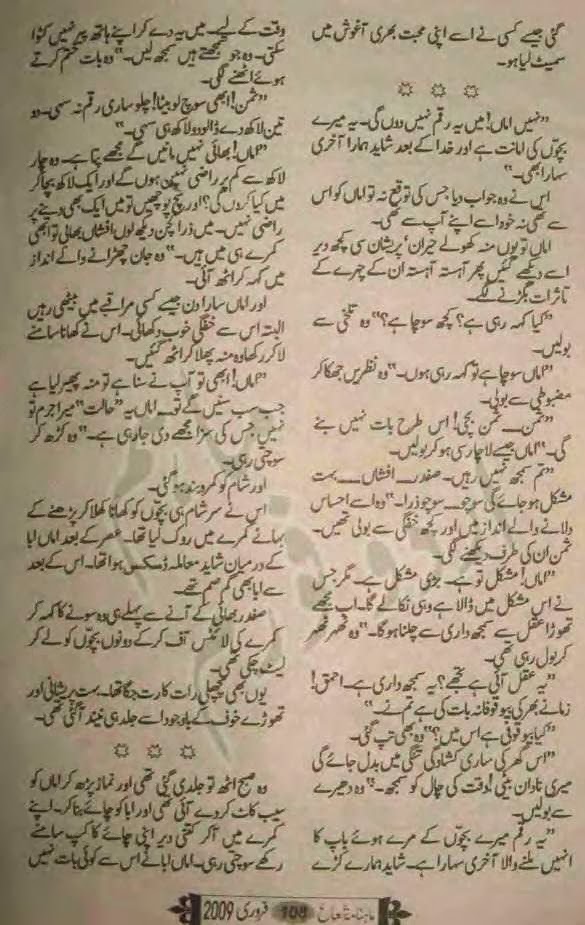 گئی جیسے کسی نے اسے اپنی محبت بھری آغوش میں
سمیٹ لیا ہو۔
"نہیں اماں! میں یہ رقم نہیں دوں گی۔ یہ میرے
بچوں کی امانت ہے اور خدا کے بعد شاید ہمارا آخری
سہارا بھی۔"
اس نے وہ جواب دیا جس کی توقع نہ تو اماں کو اس
سے تھی نہ خود اسے اپنے آپ سے تھی۔
اماں تو یوں منہ کھولے حیران' پریشان سی کچھ دیر
اسے دیکھے گئیں پھر آہستہ آہستہ ان کے چہرے کے
تاثرات بگڑنے لگے۔
"کیا کہہ رہی ہے؟ کچھ سوچا ہے؟" وہ تلخی سے
بولیں۔
"اماں سوچا ہے تو کہہ رہی ہوں۔" وہ نظریں جھکا کر
مضبوطی سے بولی۔
"ثمن۔ ثمن بچی! اس طرح بات نہیں بنے
گی۔" اماں جیسے لاچار سی ہو کر بولیں۔
"تم سمجھ نہیں رہیں۔ صفدر۔ افشاں۔ بہت
مشکل ہو جائے گی سوچو۔ سوچو ذرا۔" وہ اسے احساس
دلانے والے انداز میں اور کچھ خفگی سے بولی تھیں۔
ثمن ان کی طرف دیکھنے لگی۔
"اماں! مشکل تو ہے۔ بڑی مشکل ہے۔ مگر جس
نے اس مشکل میں ڈالا ہے وہی نکالے گا۔ اب مجھے
تھوڑا عقل سے سمجھ داری سے چلنا ہو گا۔" وہ ٹھہر ٹھہر
کر بول رہی تھی۔
"یہ عقل آئی ہے تجھے؟ یہ سمجھ داری ہے۔ احمق!
زمانے بھر کی بیوقوفانہ بات کی ہے تم نے۔"
"کیا بیوقوفی ہے اس میں؟" وہ بھی تپ گئی۔
"اس گھر کی ساری کشادگی تنگی میں بدل جائے گی
میری نادان بیٹی! وقت کی چال کو سمجھ۔" وہ دھیرے
سے بولیں۔
"یہ رقم میرے بچوں کے مرے ہوئے باپ کا
انہیں ملنے والا آخری سہارا ہے۔ شاید ہمارے کڑے
وقت کے لیے۔ میں یہ دے کر اپنے ہاتھ پیر نہیں کٹوا
سکتی۔ وہ جو سمجھتے ہیں سمجھ لیں۔" وہ بات ختم کرتے
ہوئے اٹھنے لگی۔
"ثمن! ابھی سوچ لو بیٹا! چلو ساری رقم نہ سہی۔ دو
تین لاکھ دے ڈالو دو لاکھ ہی سہی۔"
"اماں! بھائی نہیں مانیں گے مجھے پتا ہے۔ وہ چار
لاکھ سے کم پر راضی نہیں ہوں گے اور ایک لاکھ بچا کر
میں کیا کروں گی؟ اور سچ پوچھیں تو میں ایک بھی دینے پر
راضی نہیں۔ میں ذرا کچن دیکھ لوں افشاں بھابی تو ابھی
کمرے ہی میں ہیں۔" وہ جان چھڑانے والے انداز
میں کہہ کر اٹھ آئی۔
اور اماں سارا دن جیسے کسی مراقبے میں بیٹھی رہیں
البتہ اس سے خفگی خوب دکھائی۔ اس نے کھانا سامنے
لا کر رکھا وہ منہ پھلا کر اٹھ گئیں۔
"اماں! ابھی تو آپ نے سنا ہے تو منہ پھیر لیا ہے
جب سب سنیں گے تو۔ اماں یہ "حالت" میرا جرم تو
نہیں جس کی سزا مجھے دی جا رہی ہے۔" وہ کڑھ کر
سوچتی رہی۔
اور شام کو کمرہ بند ہو گئی۔
اس نے سر شام ہی بچوں کو کھانا کھلا کر پڑھنے کے
بہانے کمرے میں روک لیا تھا۔ عصر کے بعد اماں ابا
کے درمیان شاید معاملہ ڈسکس ہوا تھا۔ اس کے بعد
سے ابا بھی گم صم تھے۔
صفدر بھائی کے آنے سے پہلے ہی وہ سونے کا کہہ کر
کمرے کی لائٹس آف کر کے دونوں بچوں کو لے کر
لیٹ چکی تھی۔
یوں بھی پچھلی رات کا رت جگا تھا۔ بہت پریشانی اور
تھوڑے خوف کے باوجود اسے جلد ہی نیند آ گئی تھی۔
وہ صبح اٹھ تو جلدی گئی تھی اور نماز پڑھ کر اماں کو
سیب کاٹ کر دے آئی تھی اور ابا کو چائے بنا کر۔ اپنے
کمرے میں آ کر کتنی دیر اپنی چائے کا کپ سامنے
رکھے سوچتی رہی۔ اماں ابا نے اس سے کوئی بات نہیں
ماہنامہ شعاع 108 فروری 2009